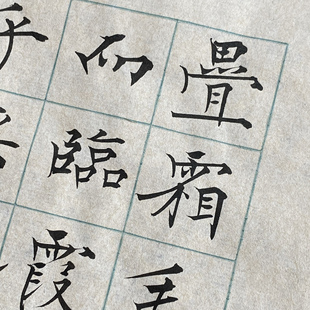 疊霜毛
而臨霞
乎